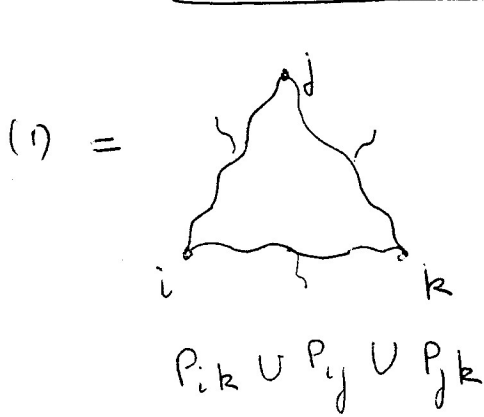 j
(1) =
i k
P_{ik} ∪ P_{ij} ∪ P_{jk}